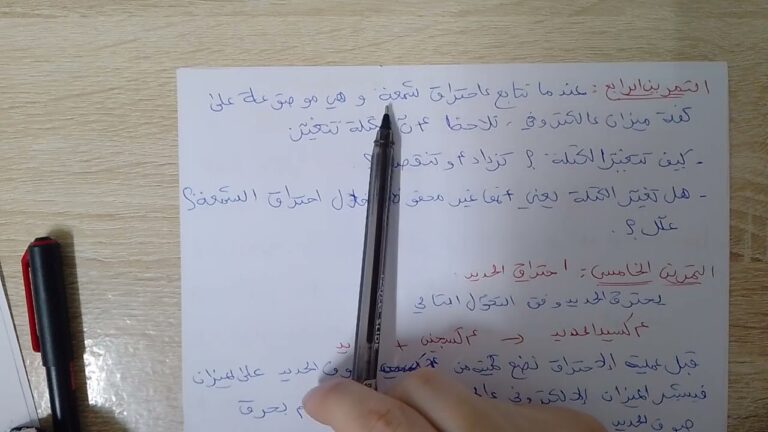 التمرين الرابع : عندما نتابع احتراق شمعة و هي موضوعة على
كفة ميزان الكتروني ، نلاحظ أن الكتلة تتغير
- كيف تتغير الكتلة ؟ تزداد أو تنقص ؟
- هل تغير الكتلة يعني أنها غير محفوظة خلال احتراق الشمعة ؟
علل ؟ .
التمرين الخامس : احتراق الحديد .
يحترق الحديد وفق التحول التالي
+ أكسجين → أكسيد الحديد
قبل عملية الاحتراق نضع كمية من صوف الحديد على الميزان
فيشير الميزان الالكتروني على نحرق
صوف الحديد